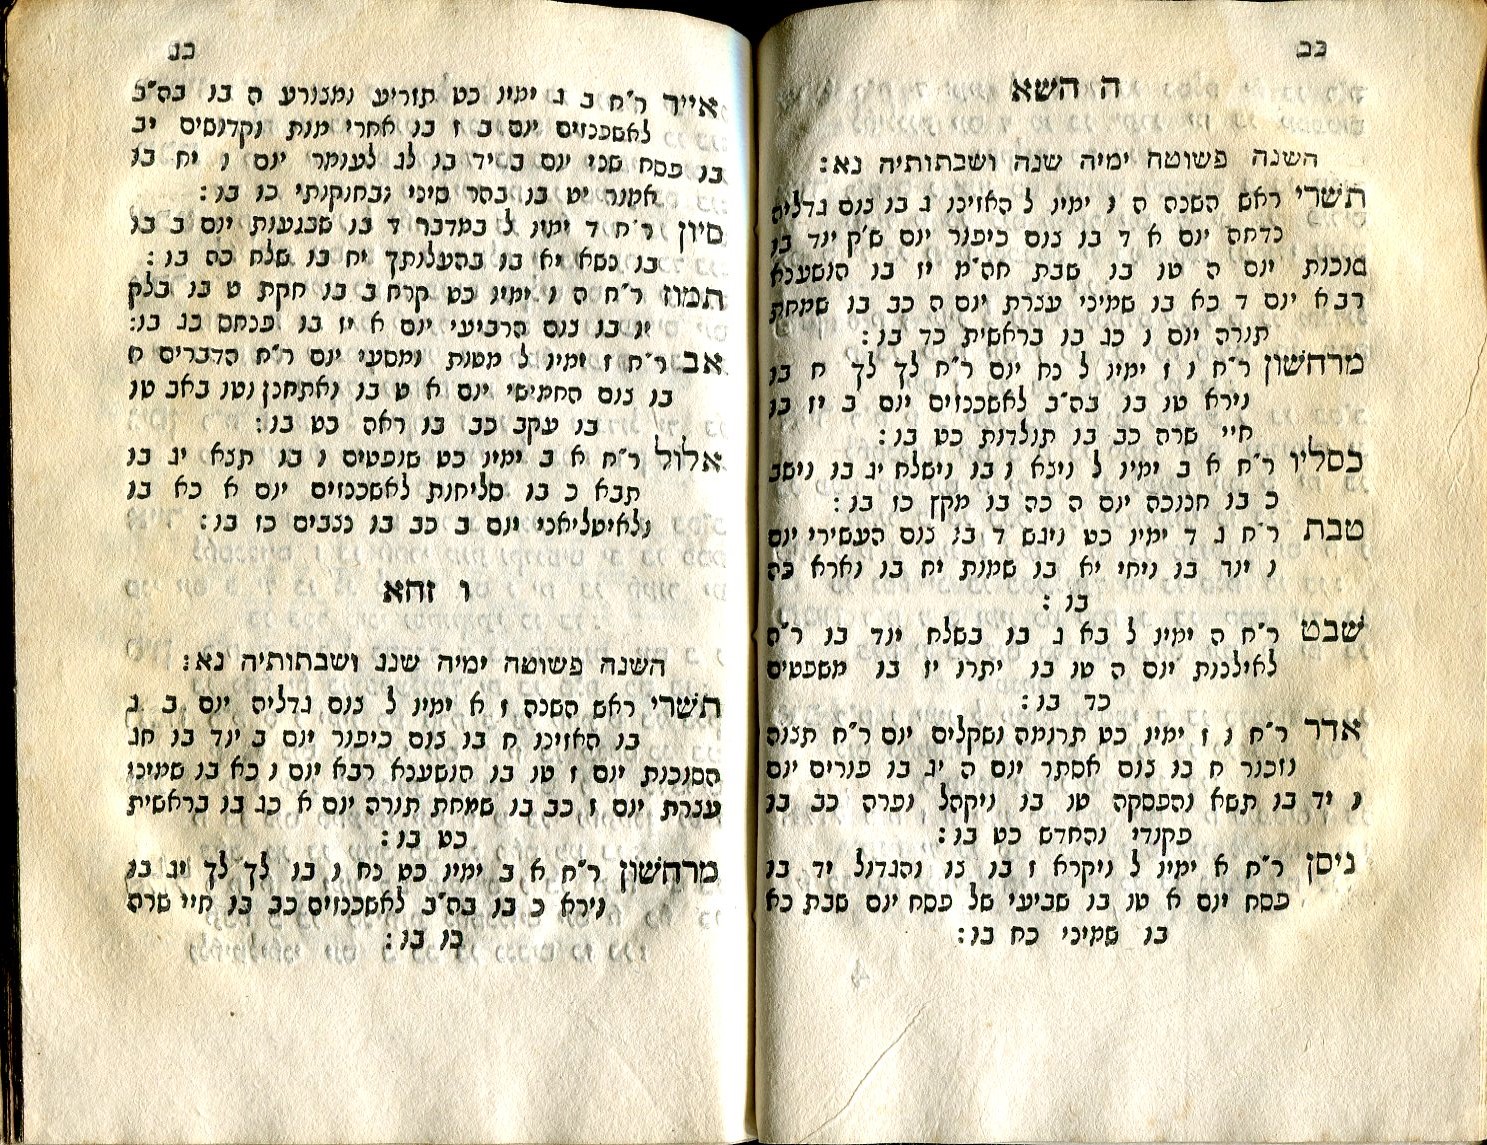 כב
ה השא
השנה פשוטה ימיה שנה ושבתותיה נא:
תשרי ראש השנה ה ו ימיו ל האזינו ג בו צום גדליה
נדחה יום א ד בו צום כיפור יום ש"ק יוד בו
סוכות יום ה טו בו שבת חה"מ יז בו הושענא
רבא יום ד כא בו שמיני עצרת יום ה כב בו שמחת
תורה יום ו כג בו בראשית כד בו:
מרחשון ר"ח ו ז ימיו ל נח יום ר"ח לך לך ח בו
וירא טו בו בה"ב לאשכנזים יום ב יז בו
חיי שרה כב בו תולדות כט בו:
כסליו ר"ח א ב ימיו ל ויצא ו בו וישלח יג בו וישב
כ בו חנוכה יום ה כה בו מקץ כז בו:
טבת ר"ח ג ד ימיו כט ויגש ד בו צום העשירי יום
ו יוד בו ויחי יא בו שמות יח בו וארא כה
בו:
שבט ר"ח ה ימיו ל בא ג בו בשלח יוד בו ר"ה
לאילנות יום ה טו בו יתרו יז בו משפטים
כד בו:
אדר ר"ח ו ז ימיו כט תרומה ושקלים יום ר"ח תצוה
וזכור ח בו צום אסתר יום ה יג בו פורים יום
ו יד בו תשא והפסקה טו בו ויקהל ופרה כב בו
פקודי והחדש כט בו:
ניסן ר"ח א ימיו ל ויקרא ז בו צו והגדול יד בו
פסח יום א טו בו שביעי של פסח יום שבת כא
בו שמיני כח בו:
כג
אייר ר"ח ב ג ימיו כט תזריע ומצורע ה בו בה"ב
לאשכנזים יום ב ז בו אחרי מות וקדושים יב
בו פסח שני יום ב יד בו לג לעומר יום ו יח בו
אמור יט בו בהר סיני ובחוקותי כו בו:
סיון ר"ח ד ימיו ל במדבר ד בו שבועות יום ב בו
בו נשא יא בו בהעלותך יח בו שלח כה בו:
תמוז ר"ח ה ו ימיו כט קרח ב בו חקת ט בו בלק
יו בו צום הרביעי יום א יז בו פנחס כג בו:
אב ר"ח ז ימיו ל מטות ומסעי יום ר"ח הדברים ח
בו צום החמישי יום א ט בו ואתחנן וטו באב טו
בו עקב כב בו ראה כט בו:
אלול ר"ח א ב ימיו כט שופטים ו בו תצא יג בו
תבא כ בו סליחות לאשכנזים יום א כא בו
ולאיטליאני יום ב כב בו נצבים כז בו:
ו זהא
השנה פשוטה ימיה שנג ושבתותיה נא:
תשרי ראש השנה ז א ימיו ל צום גדליה יום ב ג
בו האזינו ח בו צום כיפור יום ב יוד בו חג
הסוכות יום ז טו בו הושענא רבא יום ו כא בו שמיני
עצרת יום ז כב בו שמחת תורה יום א כג בו בראשית
כט בו:
מרחשון ר"ח א ב ימיו כט נח ו בו לך לך יג בו
וירא כ בו בה"ב לאשכנזים כב בו חיי שרה
כז בו: